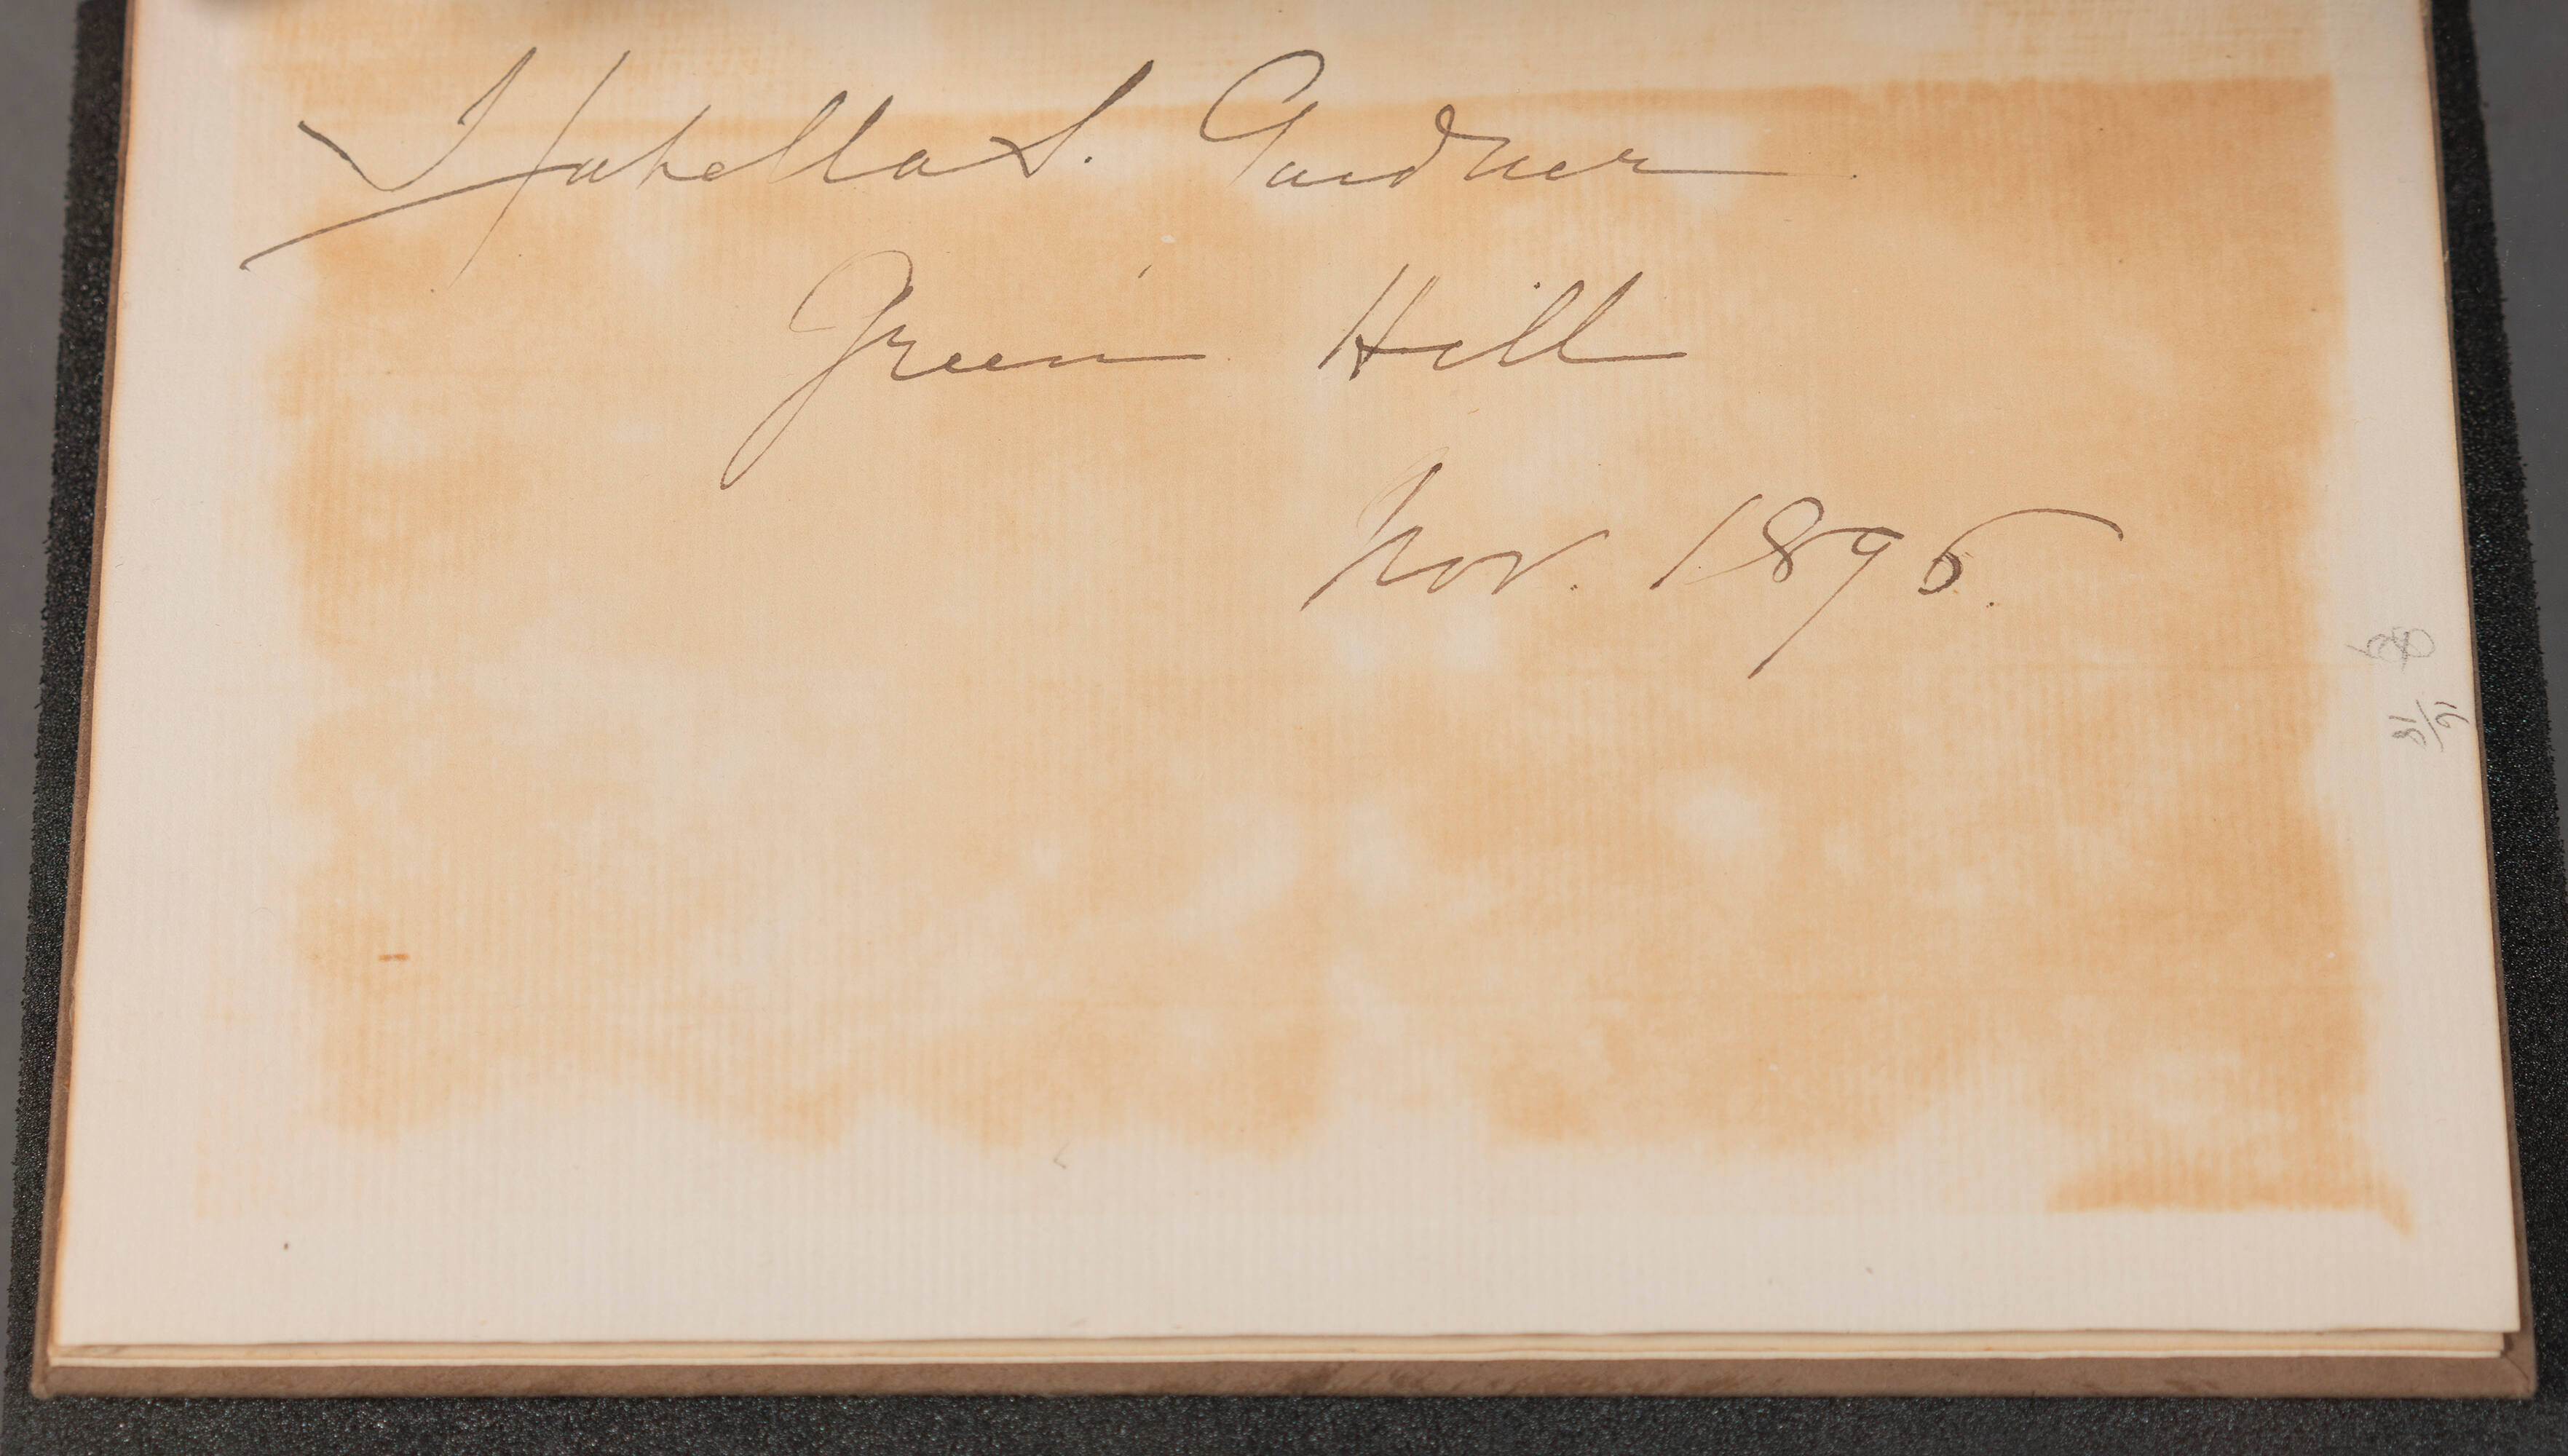 Isabella S. Gardner.
Green Hill
Nov. 1895.